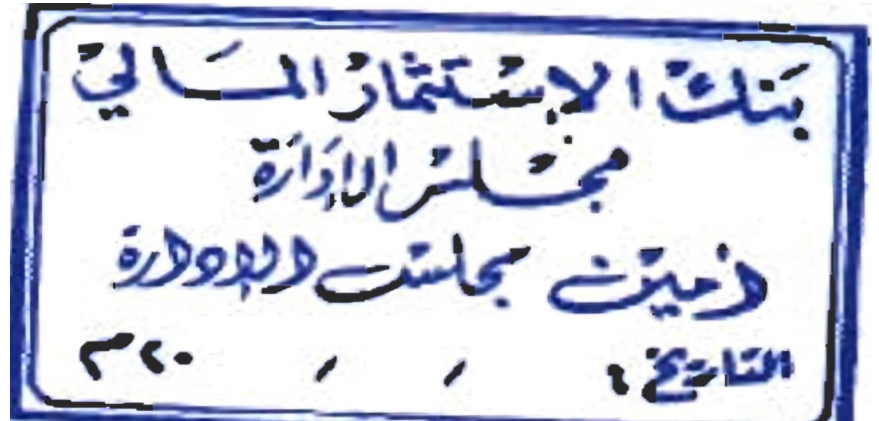 بنك الإستثمار المالي
مجلس الإدارة
أمين مجلس الإدارة
التاريخ: / / ٢٠م